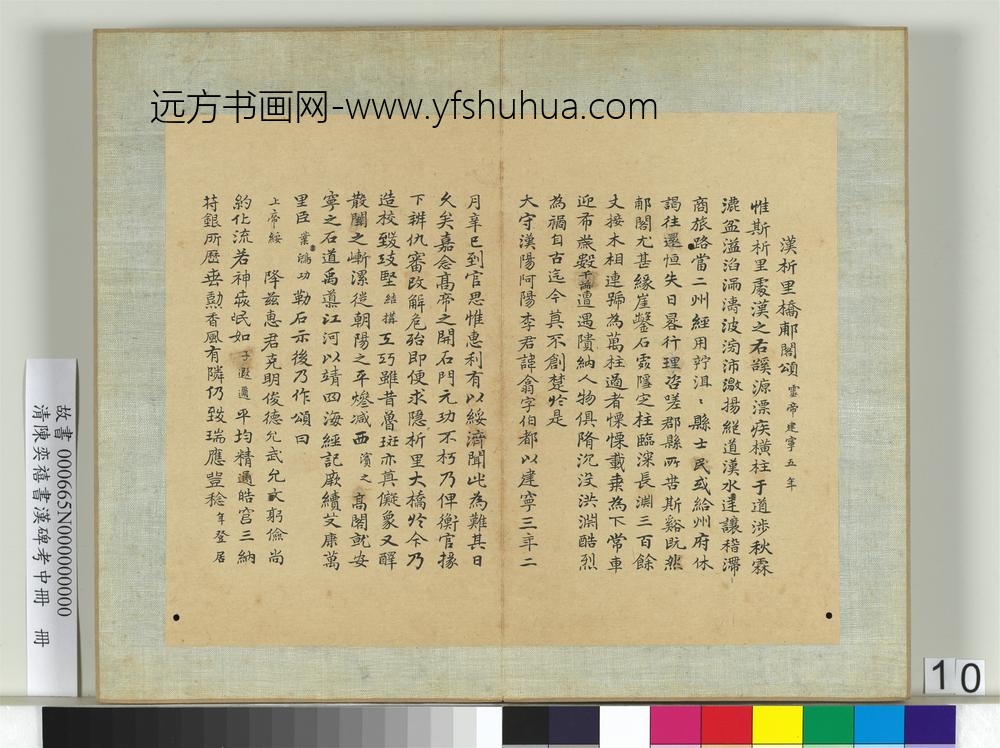 远方书画网-www.yfshuhua.com
漢析里橋郙閣頌 靈帝建寧五年
惟斯析里處漢之右谿源漂疾橫柱于道涉秋霖
漉盆溢滔漏濤波滂沛激揚絕道漢水逆讓稽滯
商旅路當二州經用狩沮縣士民或給州府休
謁往還恒失日晷行理咨嗟郡縣所苦斯谿既然
郙閣尤甚緣崖鑿石處隱定柱臨深長淵三百餘
丈接木相連號為萬柱過者慄慄載乘為下常車
迎布歲數千兩遭遇隤納人物俱隋沉沒洪淵酷烈
為禍自古迄今莫不創楚於是
大守漢陽阿陽李君諱翕字伯都以建寧三年二
月辛巳到官思惟惠利有以綏濟聞此為難其日
久矣嘉念高帝之開石門元功不朽乃俾衡官掾
下辨仇審改解危殆即便求隱析里大橋於今乃
造校致攻堅 結構 工巧雖昔魯班亦莫儗象又醳
散關之嶄漯從朝陽之平燎减西 濱之 高閣就安
寧之石道禹導江河以靖四海經記厥續艾康萬
里臣 業 鴻功 勒石示後乃作頌曰
上帝綏 降茲惠君克明俊德允武允文躬儉尚
約化流若神愛氓如 子遐邇 平均精通皓穹三納
符銀所歷垂勳香風有隣仍致瑞應豐稔 年登居
故書 000665N000000000
清陳奕禧書漢碑考中冊 冊
10